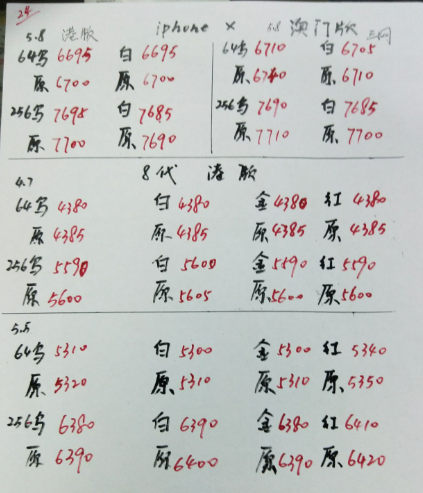 24
5.8 港版 iphone X 5.8 澳门版 三网
64乌 6695 白 6695 64乌 6710 白 6705
原 6700 原 6700 原 6740 原 6710
256乌 7695 白 7685 256乌 7690 白 7685
原 7700 原 7690 原 7710 原 7700
4.7 8代 港版
64乌 4380 白 4380 金 4380 红 4380
原 4385 原 4385 原 4385 原 4385
256乌 5590 白 5600 金 5590 红 5590
原 5600 原 5605 原 5600 原 5600
5.5
64乌 5310 白 5300 金 5300 红 5340
原 5320 原 5310 原 5310 原 5350
256乌 6380 白 6390 金 6380 红 6410
原 6390 原 6400 原 6390 原 6420